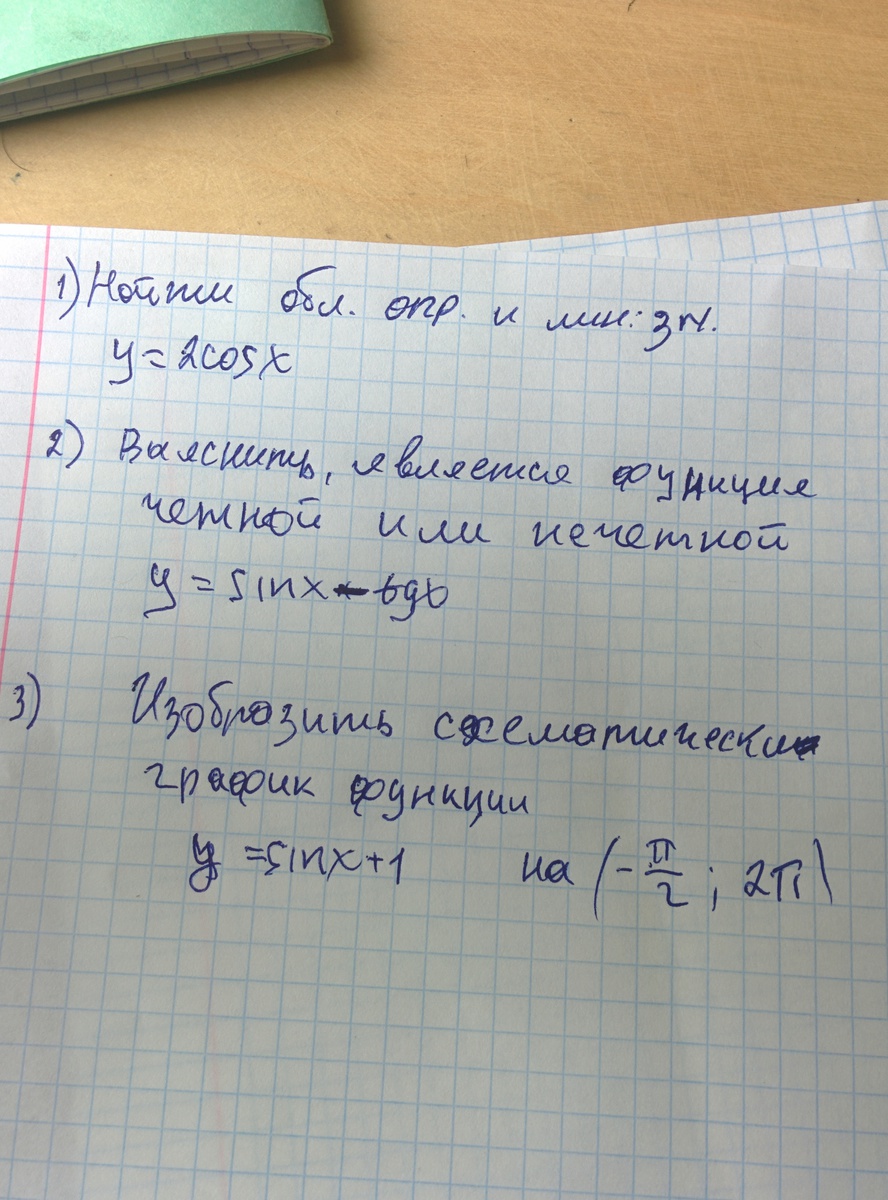 1) Найти обл. опр. и мн. зн.
y = 2cosx
2) Выяснить, является функция
четной или нечетной
y = sinx - tgx
3) Изобразить схематически
график функции
y = sinx + 1 на (-π/2; 2π)